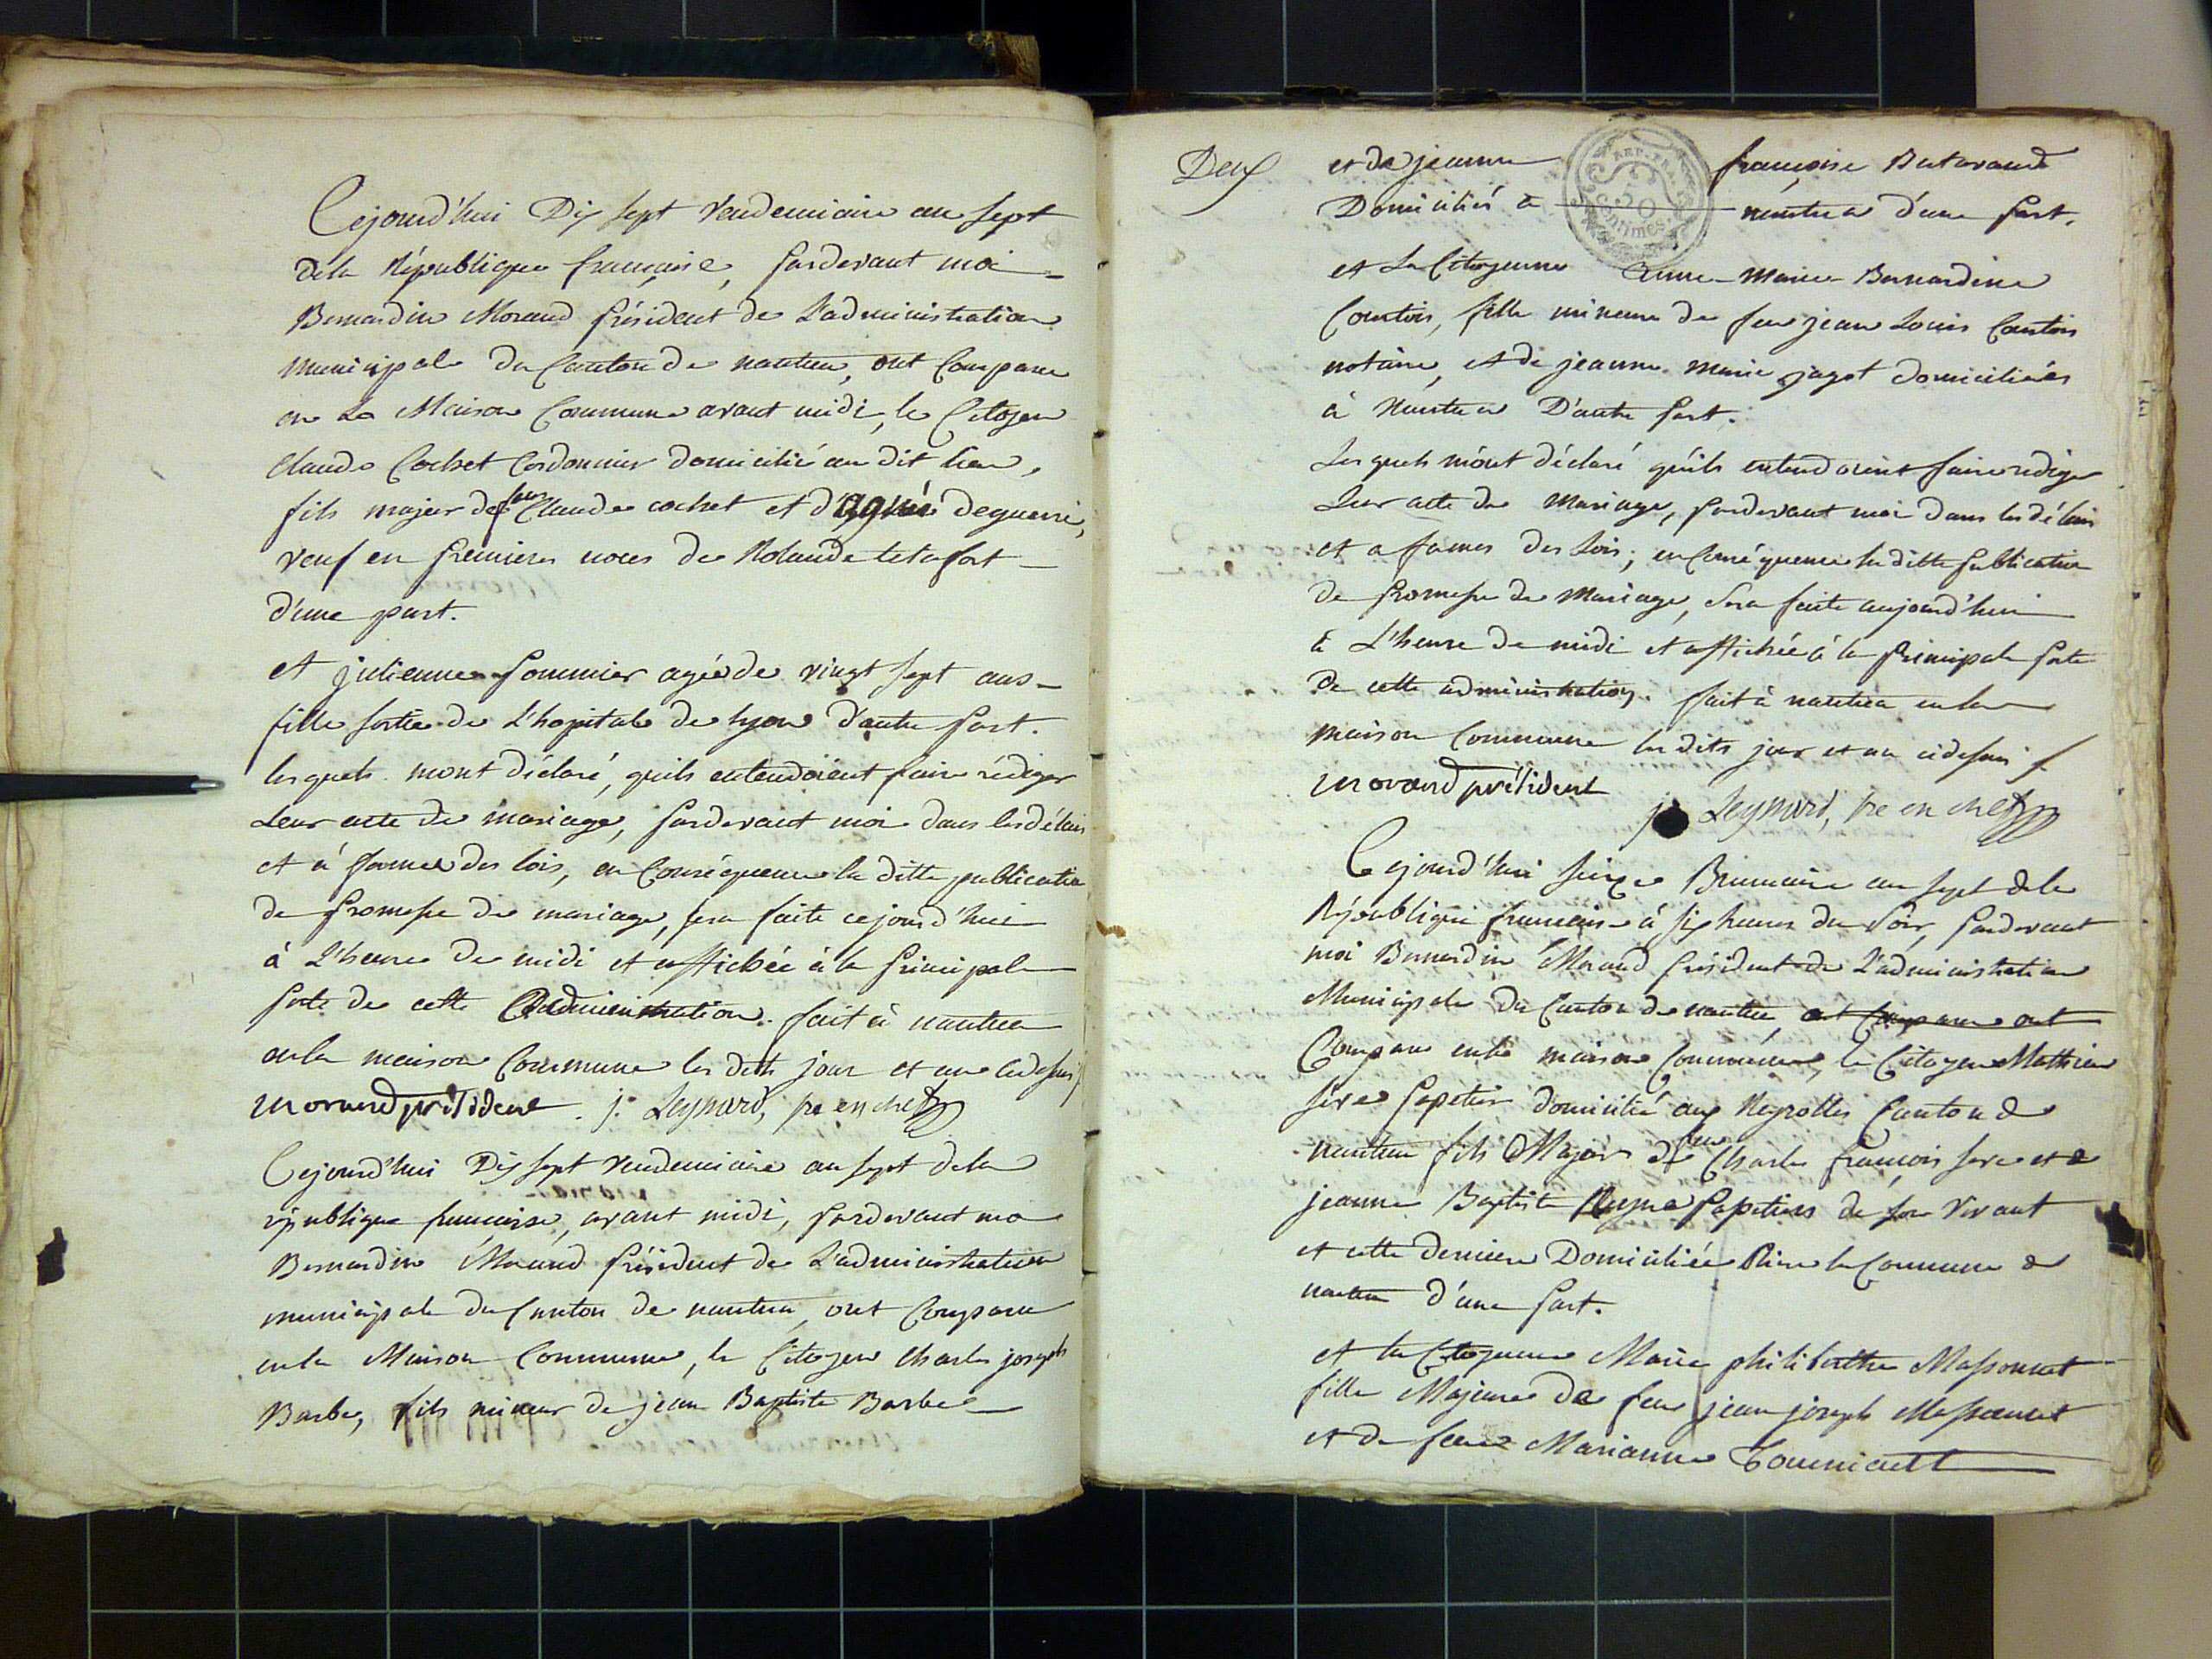 Cejourd'hui Dix sept Vendemiaire an sept
de la République française, pardevant moi
Bernardin Morand président de L'administration
municipale du Canton de nantua, ont Comparu
en La Maison Commune avant midi, le Citoyen
Claude Cochet Cordonnier domicilié au dit lieu,
fils majeur de feu Claude cochet et d'agnés deguerre,
veuf en premieres noces de Rolande
d'une part.
et julienne Sommier agée de vingt sept ans
fille sortie de L'hopital de Lyon d'autre part.
lesquels mont déclaré, quils entendoient faire rédiger
Leur acte de mariage, pardevant moi dans les délais
et à forme des lois, en Conséquence la ditte publication
de promesse de mariage, sera faite cejourd'hui
à L'heure de midi et affichée à la principale
porte de cette administration. fait à nantua
en la maison Commune les dits jour et an cidessus
morand président. j. Leymard, sre en chef
Cejourd'hui Dix sept Vendemiaire an sept de la
république francaise, avant midi, pardevant moi
Bernardin Morand président de L'administration
municipale du Canton de nantua, ont Comparu
en la Maison Commune, le Citoyen Charles joseph
Barbe, fils mineur de jean Baptiste Barbe
Deux
et de jeanne françoise Butavand
REP. FRA.
50
centimes
Domiciliés à nantua d'une part.
et La Citoyenne anne-Marie-Bernardine
Courtois, fille mineure de feu jean Louis Courtois
notaire, et de jeanne marie jagot domiciliées
à Nantua D'autre part.
Lesquels m'ont déclaré qu'ils entendoient faire rediger
Leur acte de Mariage, pardevant moi dans les délais
et a formes des Lois; en Conséquence la ditte publication
de promesse de Mariage, sera faite aujourd'hui
à L'heure de midi et affichée à la principale porte
de cette administration. fait à nantua en la
maison Commune les dits jour et an cidessus
morand président
j. Leymard, sre en chef
Cejourd'hui seize Brumaire an sept de la
République francaise à six heures du Soir, pardevant
moi Bernardin Morand président de L'administration
Municipale du Canton de nantua, ont Comparu ont
Comparu en la maison Commune, le Citoyen Mathieu
sere papetier domicilié aux Neyrolles Canton de
nantua fils Majeur de feu Charles francois sere et de
jeanne Baptiste papetiers de son Vivant
et cette derniere Domiciliée Riere la Commune de
nantua d'une part.
et la Citoyenne Marie philiberthe Massonnet
fille Majeure de feu jean joseph Massonnet
et de feue Marianne Tournieult